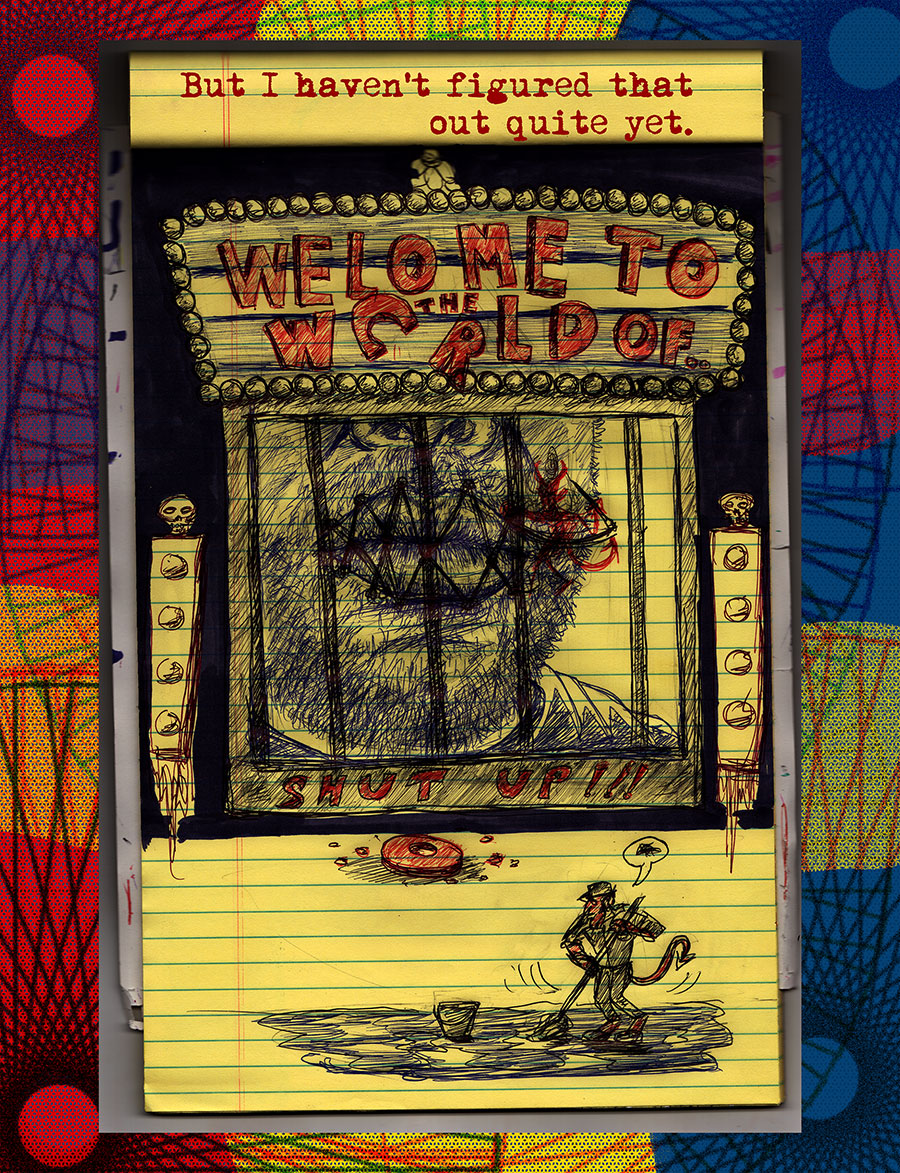 But I haven't figured that
out quite yet.
WELOME TO
THE
WCRLD OF...
SHUT UP!!!